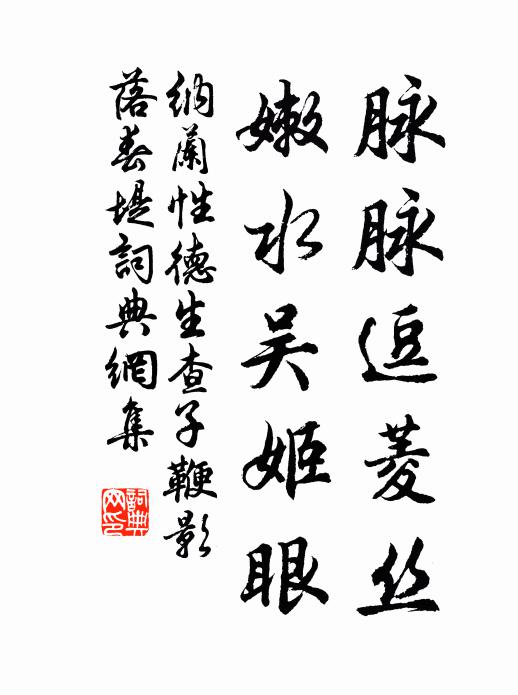 脉脉逗菱丝
嫩水吴姬眼
纳蘭性德生查子鞭影
落春堤詞典網集
詞典网印